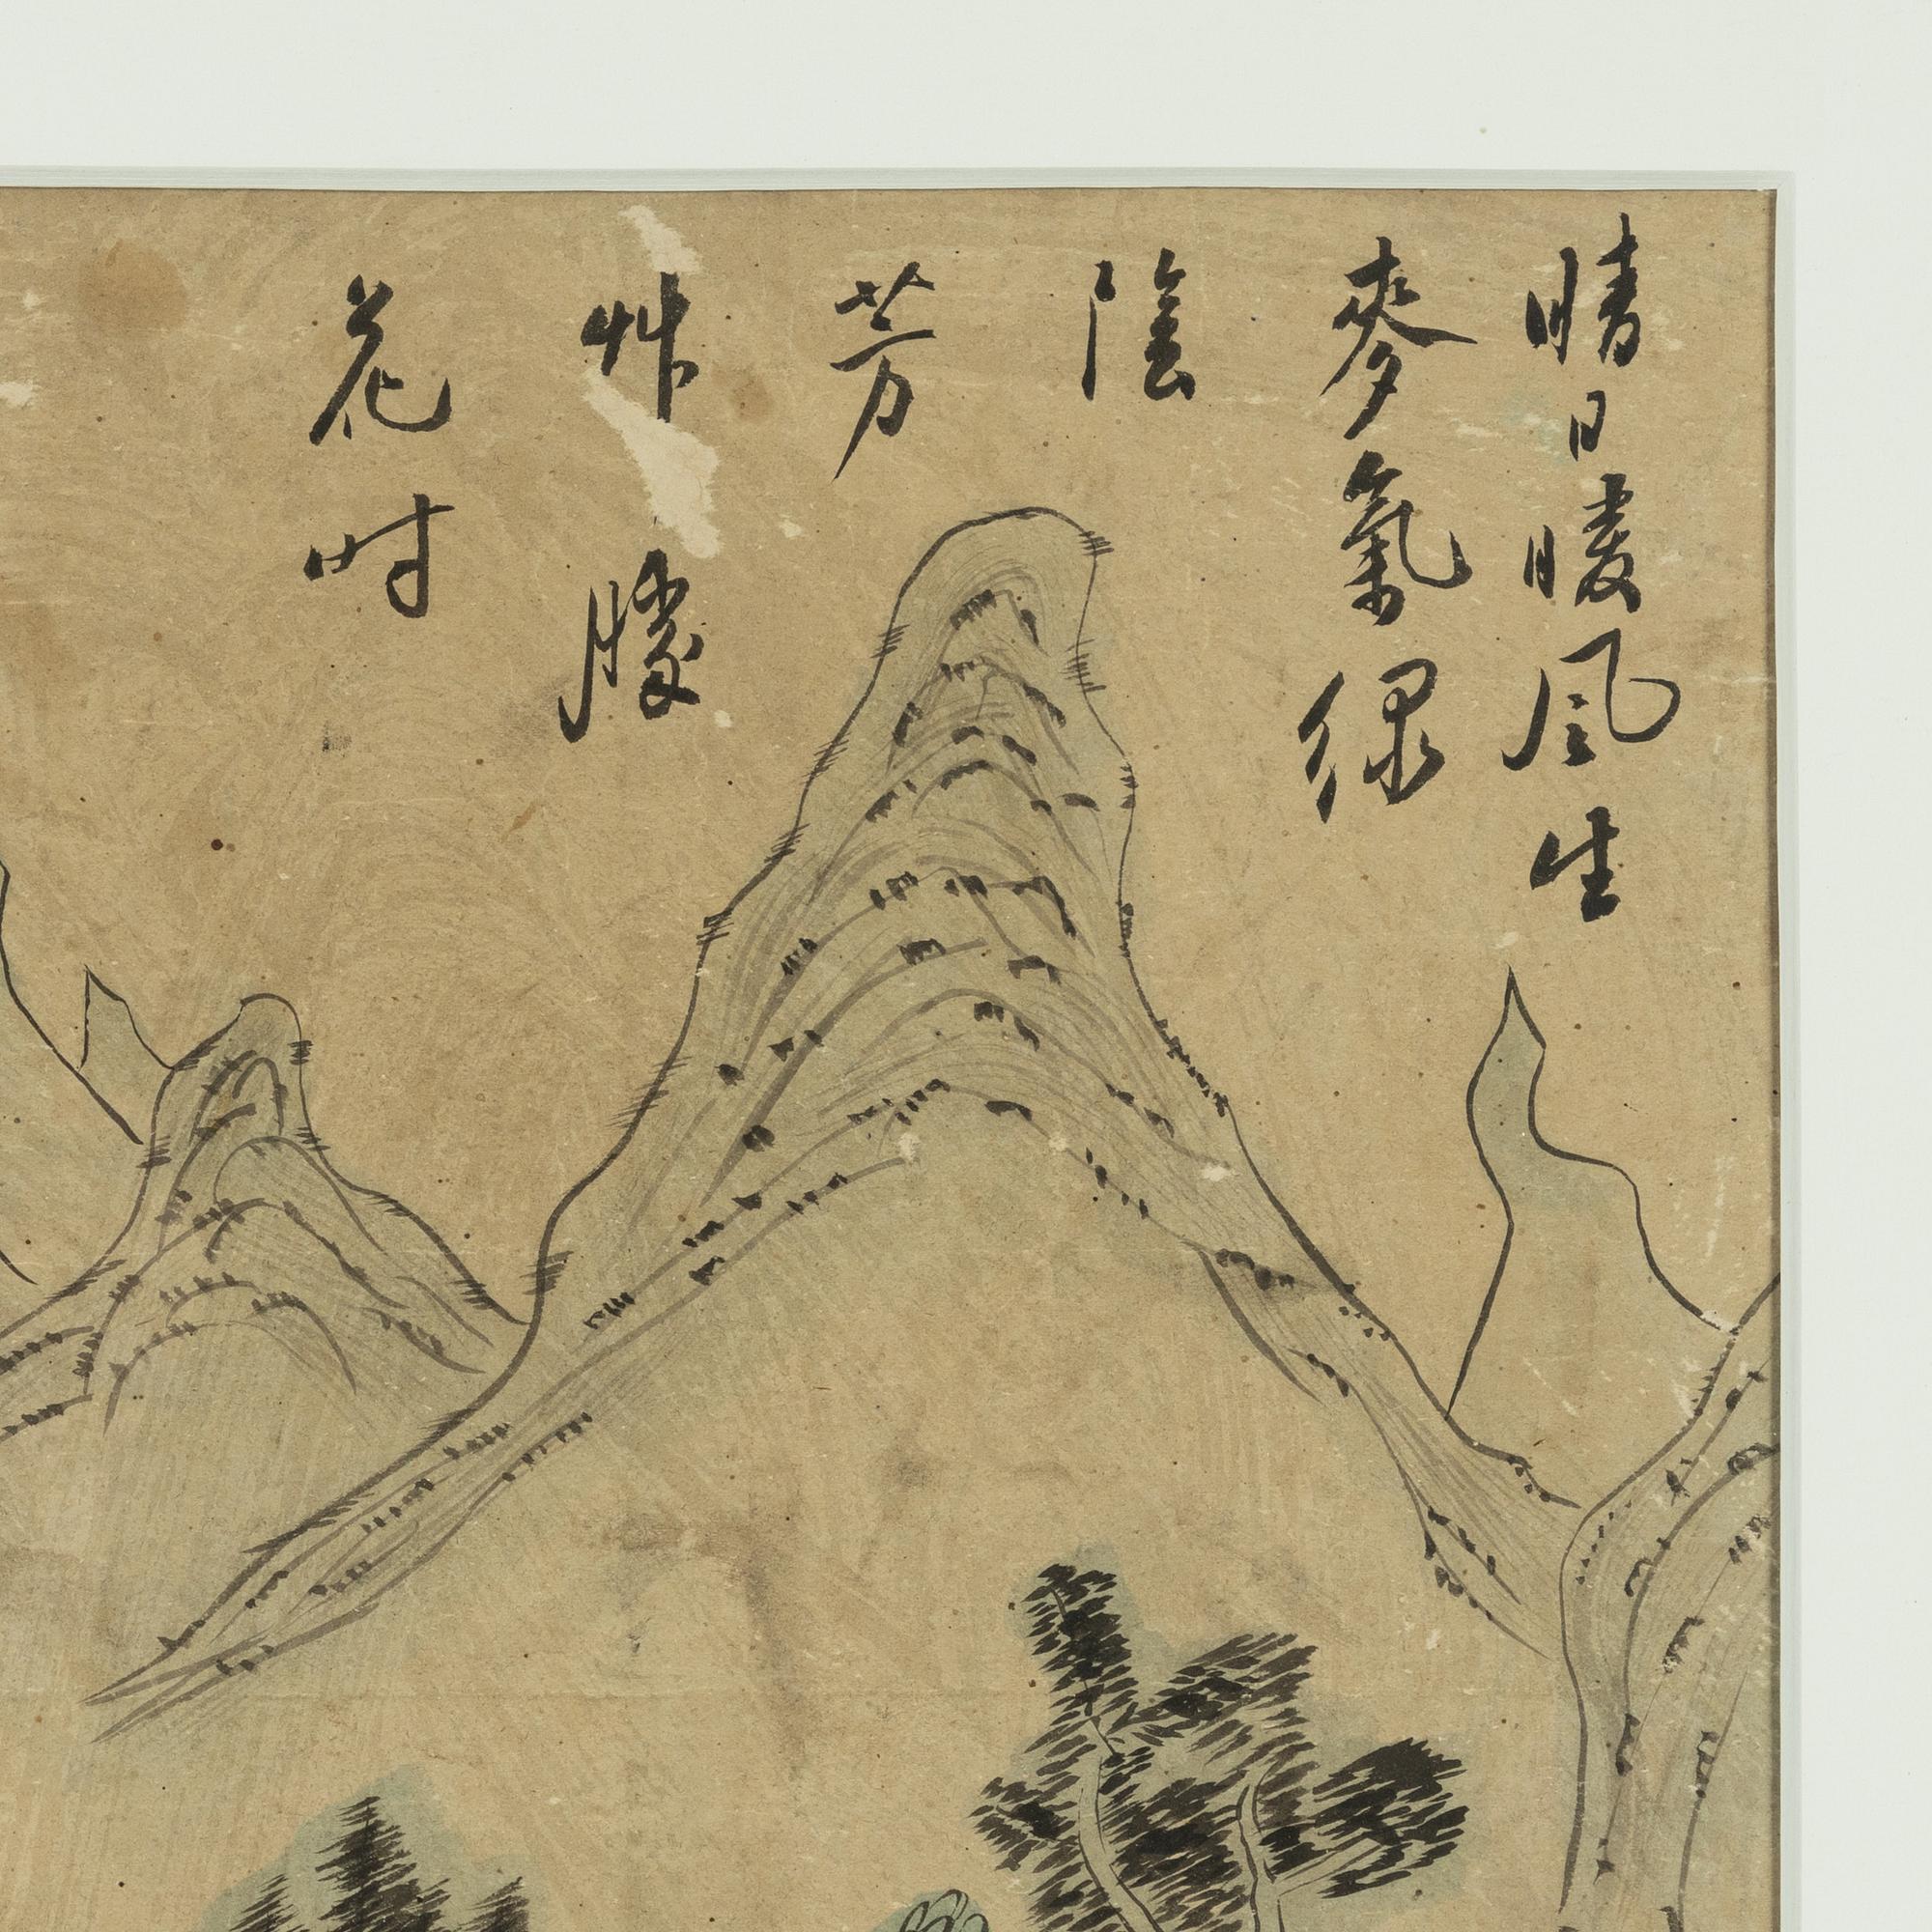 晴日暖風生
麥氣綠
陰
芳
艸勝
花時